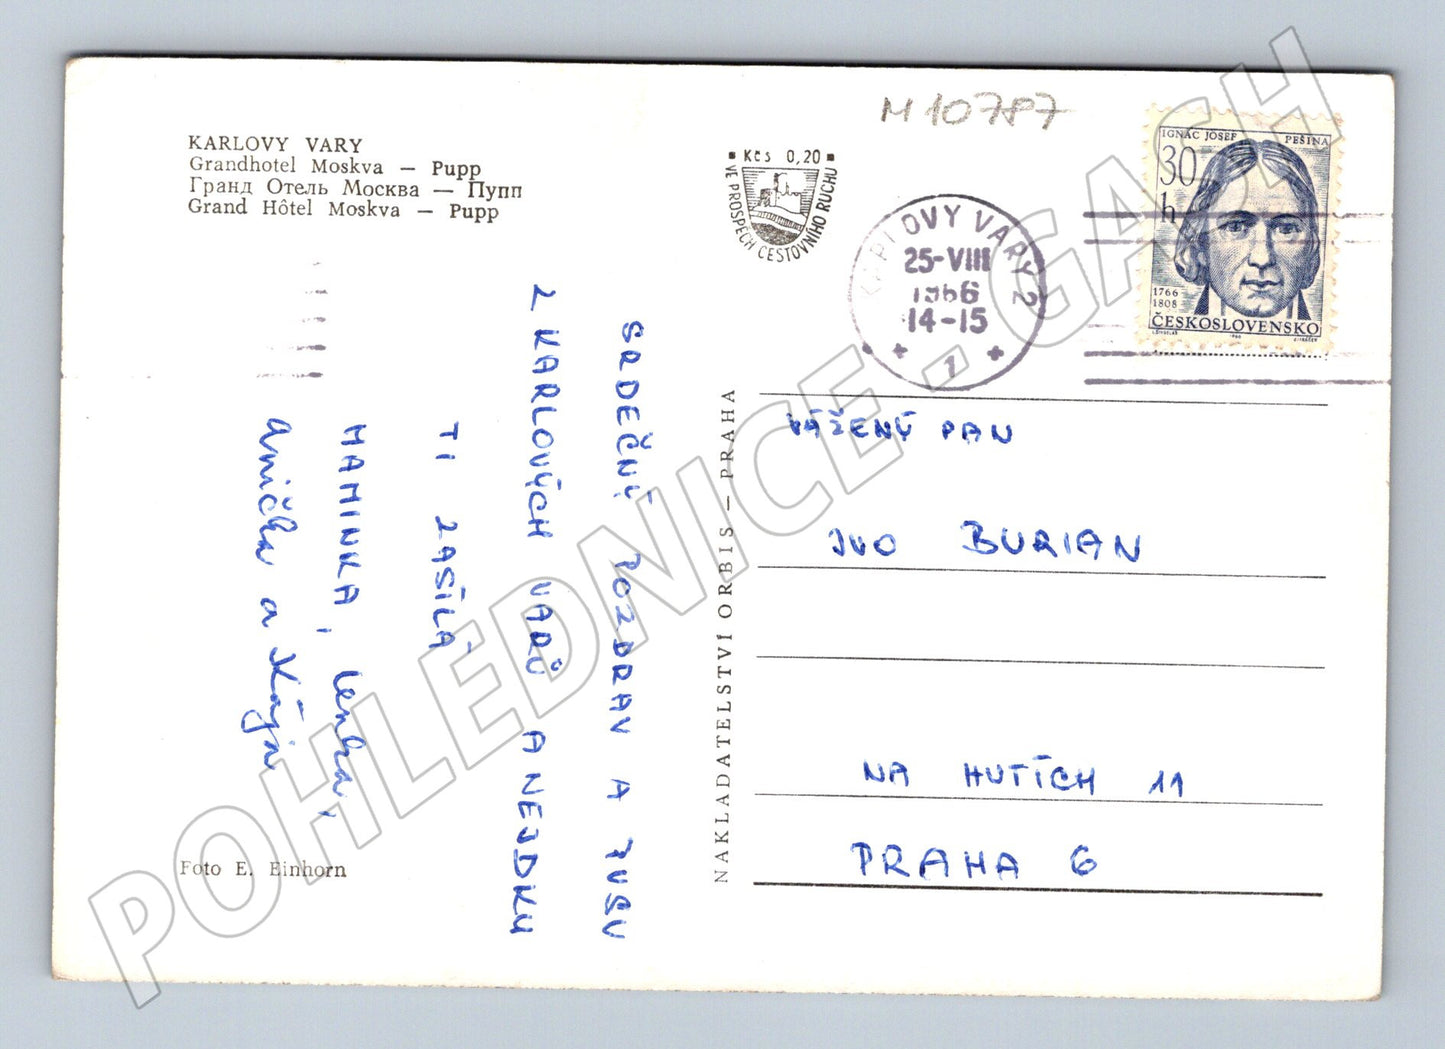 KARLOVY VARY
Grandhotel Moskva — Pupp
Гранд Отель Москва — Пупп
Grand Hôtel Moskva — Pupp
M 10787
Kčs 0,20
VE PROSPĚCH CESTOVNÍHO RUCHU
KARLOVY VARY 2
25-VIII
1966
14-15
1
IGNÁC JOSEF PEŠINA
30
h
1766
1808
ČESKOSLOVENSKO
SRDEČNÝ POZDRAV A PUSU
Z KARLOVÝCH VARŮ A NEJDKU
TI ZASÍLÁ
MAMINKA, Lenka,
Anička a Kája
VÁŽENÝ PAN
IVO BURIAN
NA HUTÍCH 11
PRAHA 6
NAKLADATELSTVÍ ORBIS — PRAHA
Foto E. Einhorn
POHLEDNICE.GASH